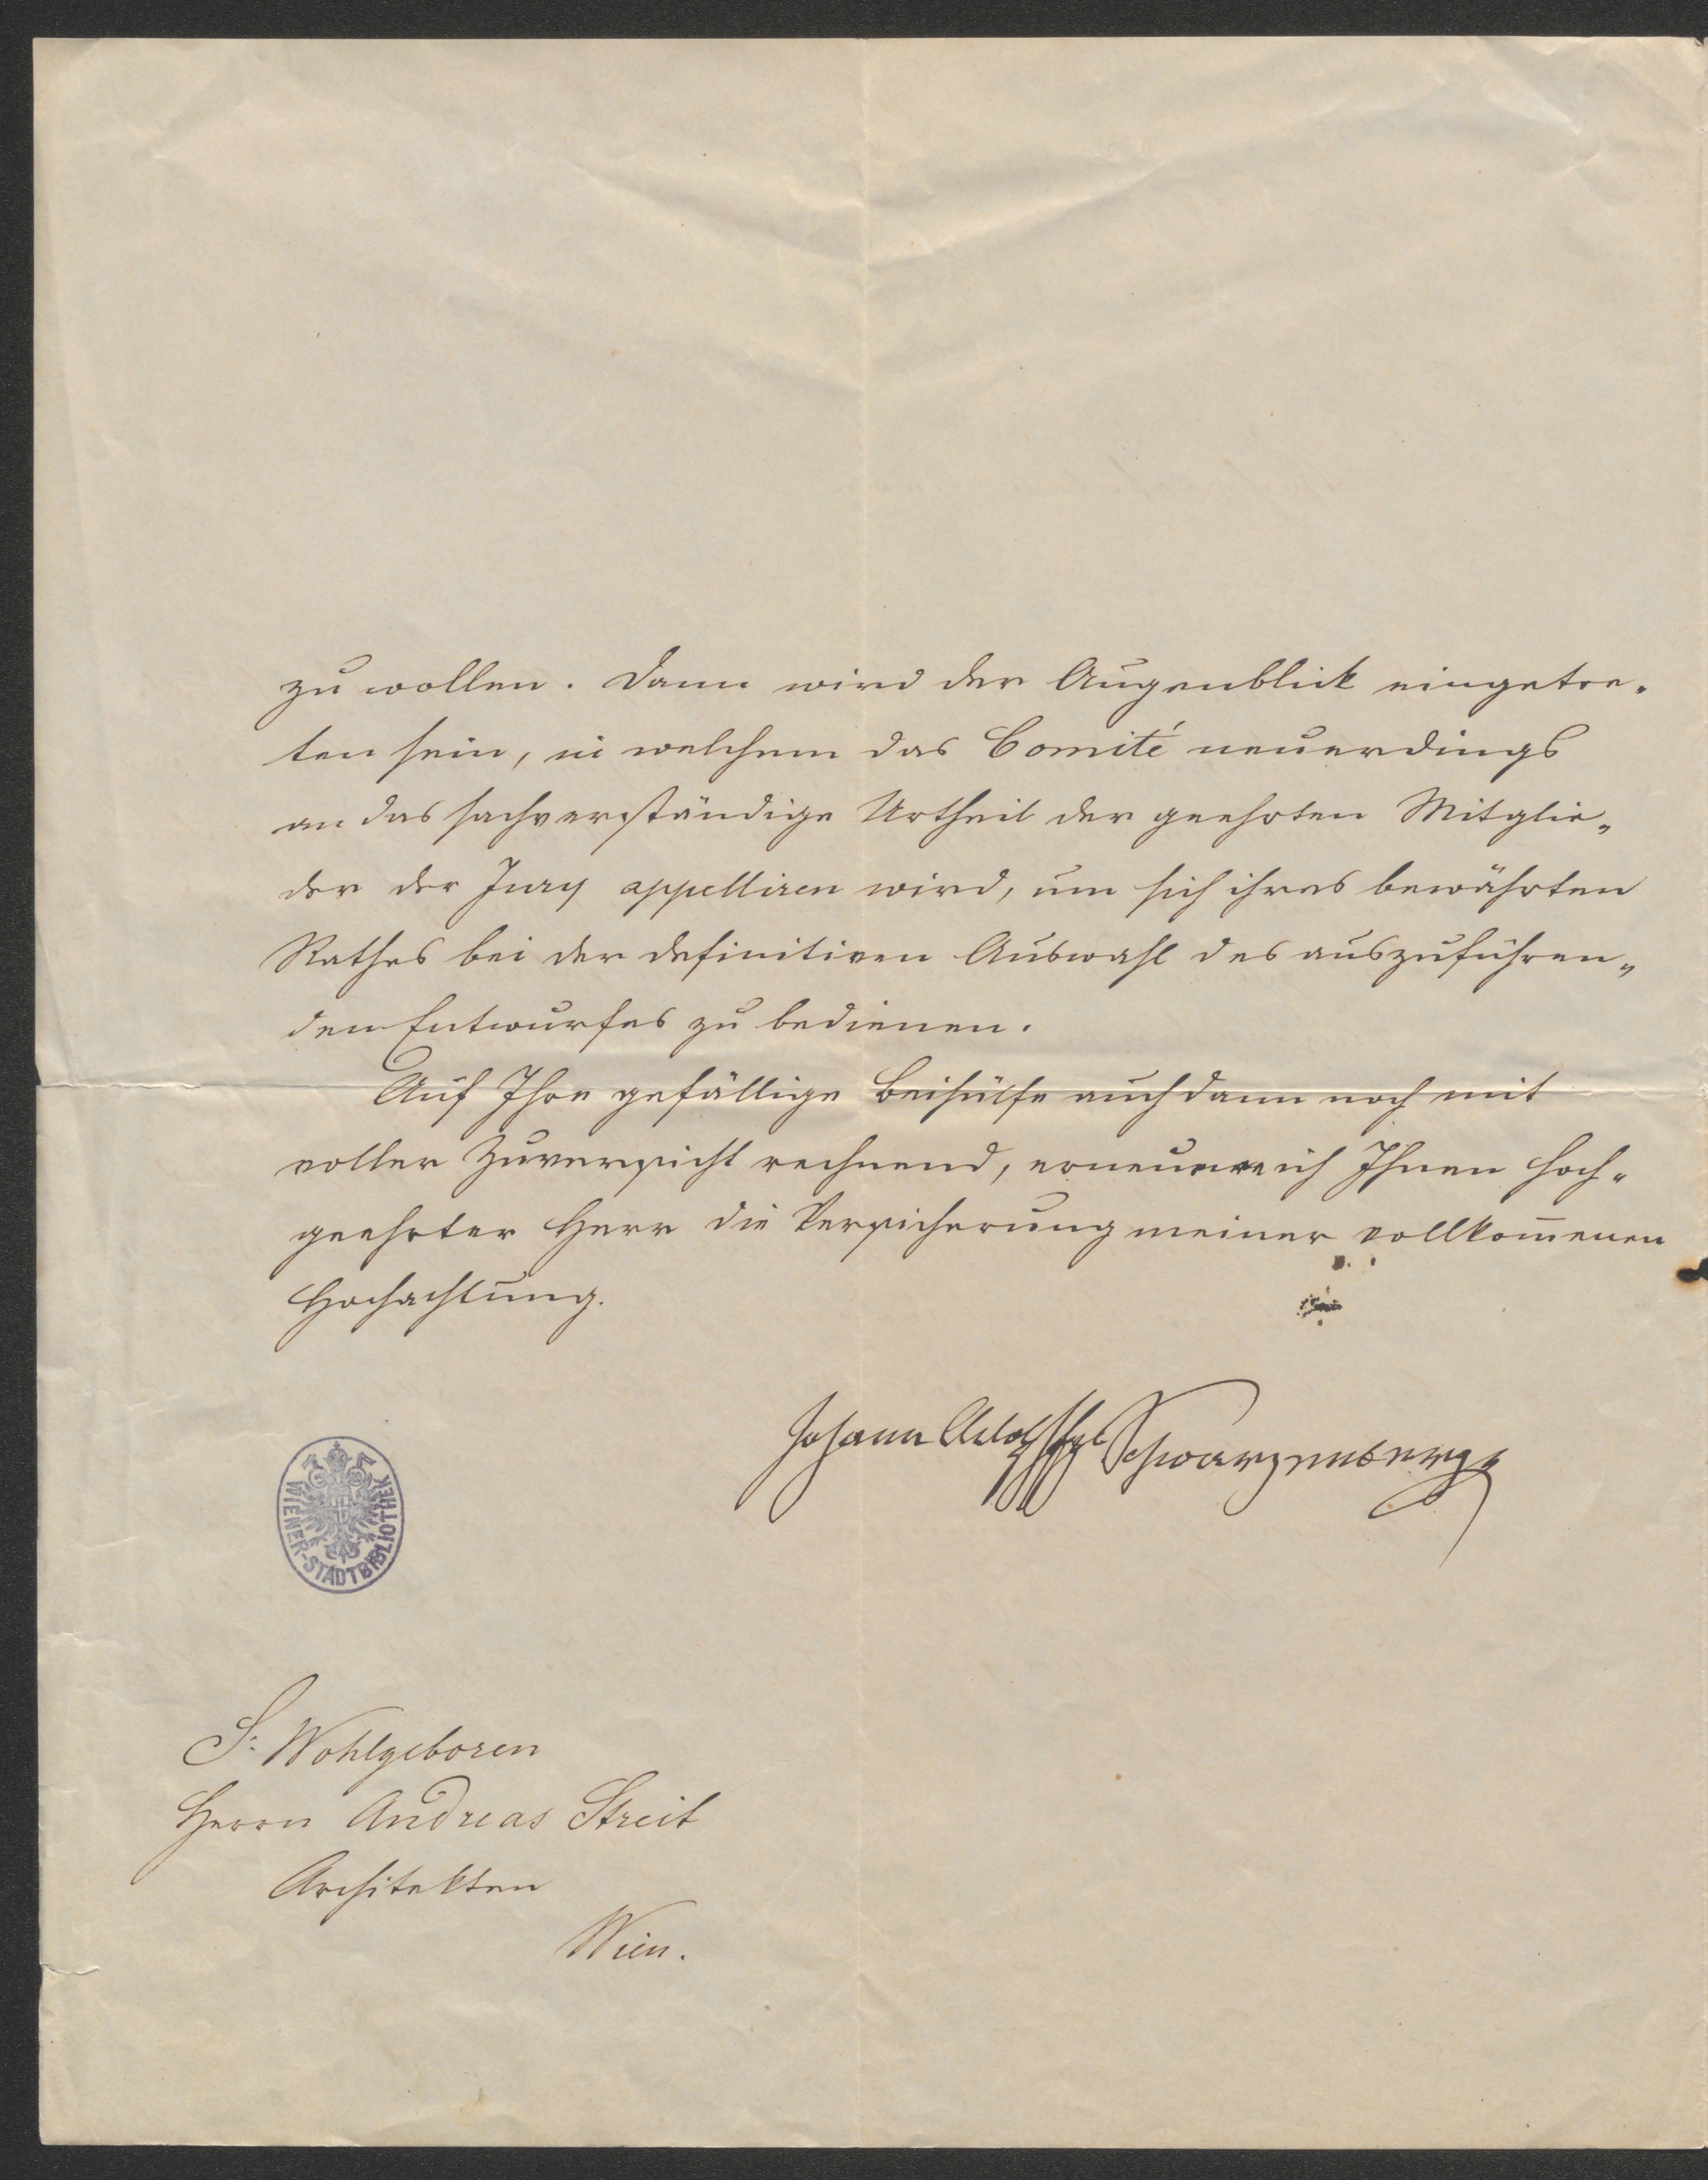 zu wollen. Dann wird der Augenblick eingetre„
ten sein, in welchem das Comité neuerdings
an das sachverständige Urtheil der geehrten Mitglie„
der der Jury appelliren wird, um sich ihres bewährten
Rathes bei der definitiven Auswahl des auszuführen„
den Entwurfes zu bedienen.
Auf Ihre gefällige Beihülfe auch dann noch mit
voller Zuversicht rechnend, erneuere ich Ihnen hoch„
geehrter Herr die Versicherung meiner vollkom̄enen
Hochachtung.
Johann Adolf Fst Schwarzenberg
WIENER-STADTBIBLIOTHEK
Sr Wohlgeboren
Herrn Andreas Streit
Architekten
Wien.